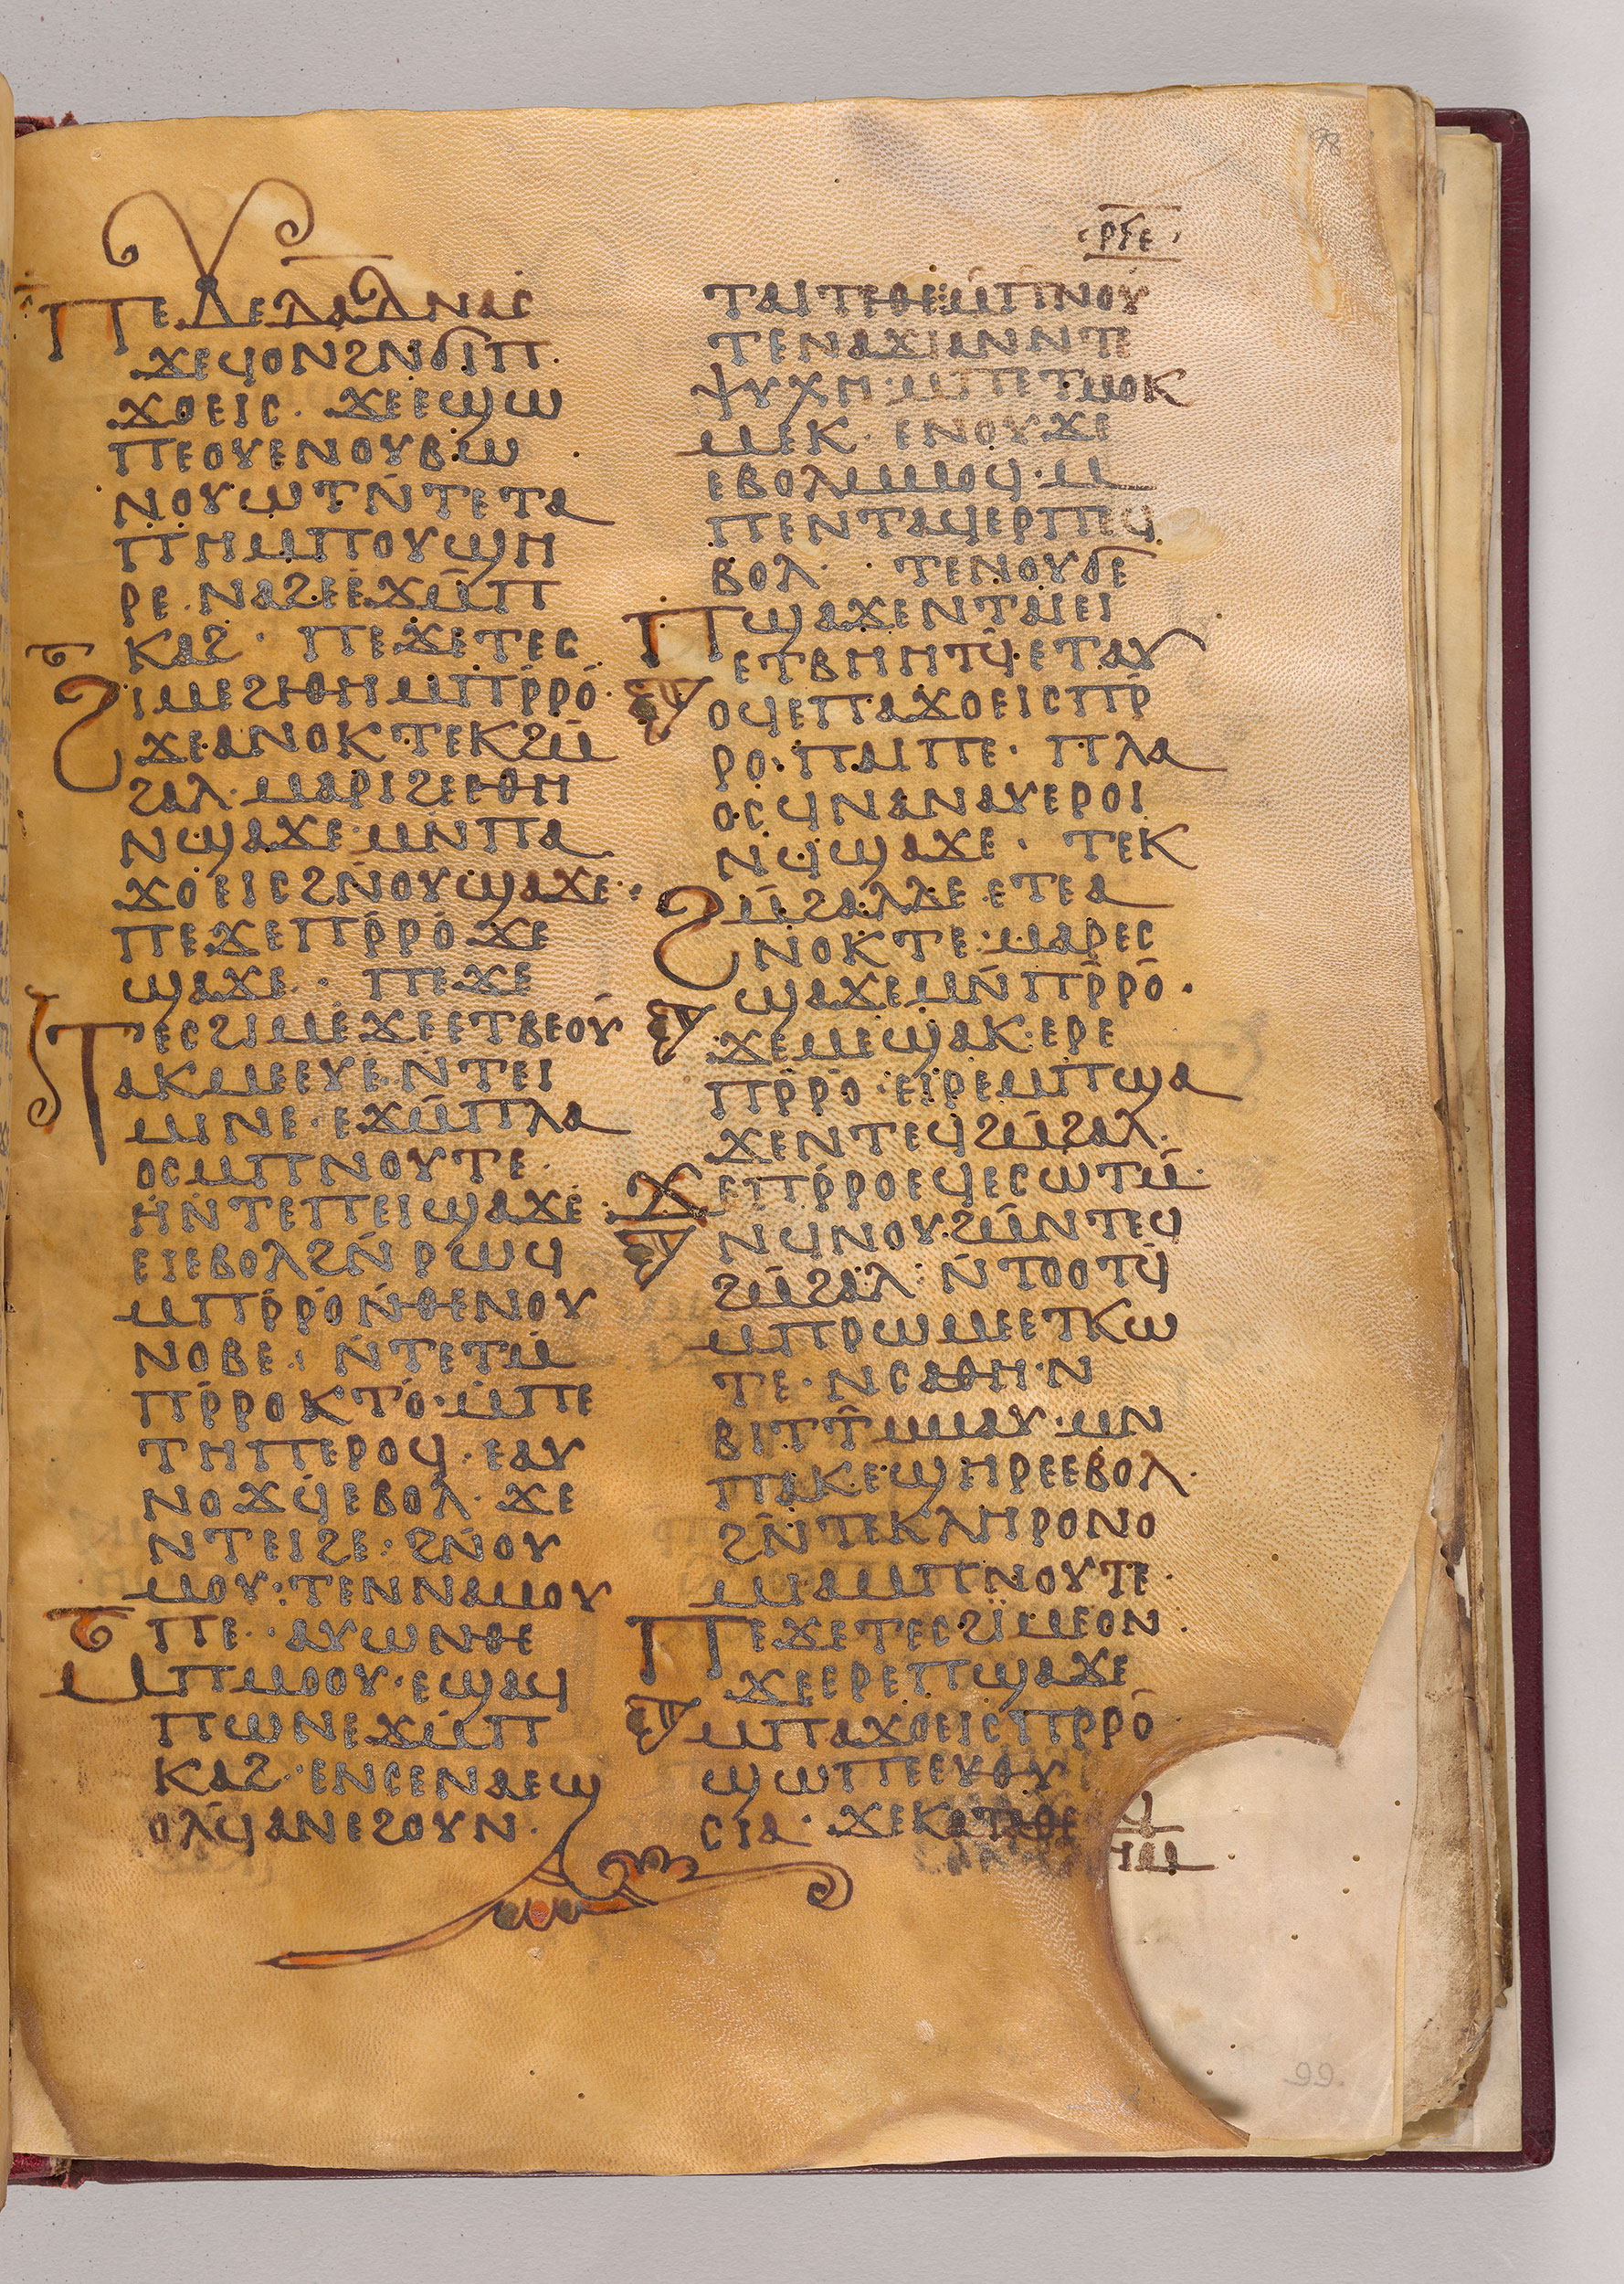 98
ⲣϥⲉ
ⲡⲉϫⲉ ⲇⲁⲇ ⲛⲁⲥ
ϫⲉϥⲟⲛϩ ⲛϭⲓⲡ
ϫⲟⲉⲓⲥ · ϫⲉⲉϣⲱ
ⲡⲉⲟⲩⲉⲛⲟⲩⲃⲱ
ⲛⲟⲩⲱⲧ ⲛ̇ⲧⲉⲧⲁ
ⲡⲏ ⲙⲡⲟⲩϣⲏ
ⲣⲉ · ⲛⲁϩⲉ ⲉϫⲙ̇ⲡ
ⲕⲁϩ · ⲡⲉϫⲉⲧⲉⲥ
ϩⲓⲙⲉ ϩⲓⲑⲏ ⲙⲡⲣ̇ⲣⲟ ·
ϫⲉⲁⲛⲟⲕ ⲧⲉⲕϩⲙ̇
ϩⲁⲗ · ⲙⲁⲣⲓϩⲉⲉⲑⲏ
ⲛϣⲁϫⲉ · ⲙⲛⲡⲁ
ϫⲟⲉⲓⲥ ϩⲛ̇ⲟⲩϣⲁϫⲉ ·
ⲡⲉϫⲉⲡⲣ̇ⲣⲟ ϫⲉ
ϣⲁϫⲉ · ⲡⲉϫⲉ
ⲧⲉⲥϩⲓⲙⲉ ϫⲉⲉⲧⲃⲉⲟⲩ
ⲁⲕⲙⲉⲉⲩⲉ ⲛ̇ⲧⲉⲓ
ⲙⲓⲛⲉ · ⲉϫⲙ̇ⲡⲗⲁ
ⲟⲥ ⲙⲡⲛⲟⲩⲧⲉ ·
ⲏ ⲛ̇ⲧⲉⲡⲉⲓϣⲁϫⲉ ·
ⲉⲓⲉⲃⲟⲗϩⲛ̇ ⲣⲱϥ
ⲙⲡⲣ̇ⲣⲟ ⲛ̇ⲑⲉⲛⲟⲩ
ⲛⲟⲃⲉ · ⲛ̇ⲧⲉⲧⲙ̇
ⲡⲣ̇ⲣⲟⲕⲧⲟ · ⲙ̇ⲡⲉ
ⲧⲏⲡⲉⲣⲟϥ · ⲉⲁⲩ
ⲛⲟϫϥⲉⲃⲟⲗ · ϫⲉ
ⲛⲧⲉⲓϩⲉ · ϩⲛ̇ⲟⲩ
ⲙⲟⲩ · ⲧⲉⲛⲛⲁⲙⲟⲩ
ⲡⲉ · ⲁⲩⲱⲛⲑⲉ
ⲙⲡⲙⲟⲟⲩ · ⲉϣⲁϥ
ⲡⲱⲛ ⲉϫⲙ̇ⲡ
ⲕⲁϩ · ⲉⲛⲥⲉⲛⲁⲉϣ
ⲟⲗϥ ⲁⲛ ⲉϩⲟⲩⲛ ·
ⲧⲁⲓ ⲧⲉ ⲑⲉ ⲙ̇ⲡⲛⲟⲩ
ⲧⲉ ⲛⲁϫⲓ ⲁⲛ ⲛⲧⲉ
ⲯⲩⲭⲏ · ⲙⲡⲉⲧⲙⲟⲕ
ⲙⲉⲕ · ⲉⲛⲟⲩϫⲉ
ⲉⲃⲟⲗ ⲙⲙⲟϥ · ⲙ
ⲡⲉⲛⲧⲁϥⲉⲣⲡⲉϥ
ⲃⲟⲗ · ⲧⲉⲛⲟⲩϭⲉ
ⲡϣⲁϫⲉⲛⲧⲁⲓⲉⲓ
ⲉⲧⲃⲏⲏⲧϥ ⲉⲧⲁⲩ
ⲟϥ ⲉⲡⲁϫⲟⲉⲓⲥ ⲡⲣ̇
ⲣⲟ · ⲡⲁⲓⲡⲉ · ⲡⲗⲁ
ⲟⲥ ϥⲛⲁⲛⲁⲩ ⲉⲣⲟⲓ
ⲛϥϣⲁϫⲉ · ⲧⲉⲕ
ϩⲙ̇ϩⲁⲗ ⲇⲉ ⲉⲧⲉⲁ
ⲛⲟⲕⲧⲉ · ⲙⲁⲣⲉⲥ
ϣⲁϫⲉ ⲙⲛ̇ ⲡⲣ̇ⲣⲟ ·
ϫⲉⲙⲉϣⲁⲕ · ⲉⲣⲉ
ⲡⲣ̇ⲣⲟ · ⲉⲓⲣⲉ ⲙⲡϣⲁ
ϫⲉ ⲛⲧⲉϥϩⲙ̇ϩⲁⲗ ·
ϫⲉⲡⲣ̇ⲣⲟ ⲉϥⲉⲥⲱⲧⲙ̇ ·
ⲛϥⲛⲟⲩϩⲙ̇ ⲛⲧⲉϥ
ϩⲙ̇ϩⲁⲗ · ⲛ̇ⲧⲟⲟⲧϥ̇
ⲙⲡⲣⲱⲙⲉ ⲉⲧⲕⲱ
ⲧⲉ · ⲛⲥⲁⲑⲏ · ⲛ
ϥⲓⲧⲧ̇ ⲙⲙⲁⲩ · ⲙⲛ
ⲡⲁⲕⲉϣⲏⲣⲉ ⲉⲃⲟⲗ ·
ϩⲛ̇ ⲧⲉⲕⲗⲏⲣⲟⲛⲟ
ⲙⲓⲁ ⲙⲡⲛⲟⲩⲧⲉ ·
ⲡⲉϫⲉⲧⲉⲥϩⲓⲙⲉ ⲟⲛ ·
ϫⲉⲉⲣⲉⲡϣⲁϫⲉ
ⲙⲡⲁϫⲟⲉⲓⲥ ⲡⲣ̇ⲣⲟ
ϣⲱⲡⲉ ⲉⲩⲑⲩ
ⲥⲓⲁ · ϫⲉⲕⲁⲧⲁⲑⲉ
99.